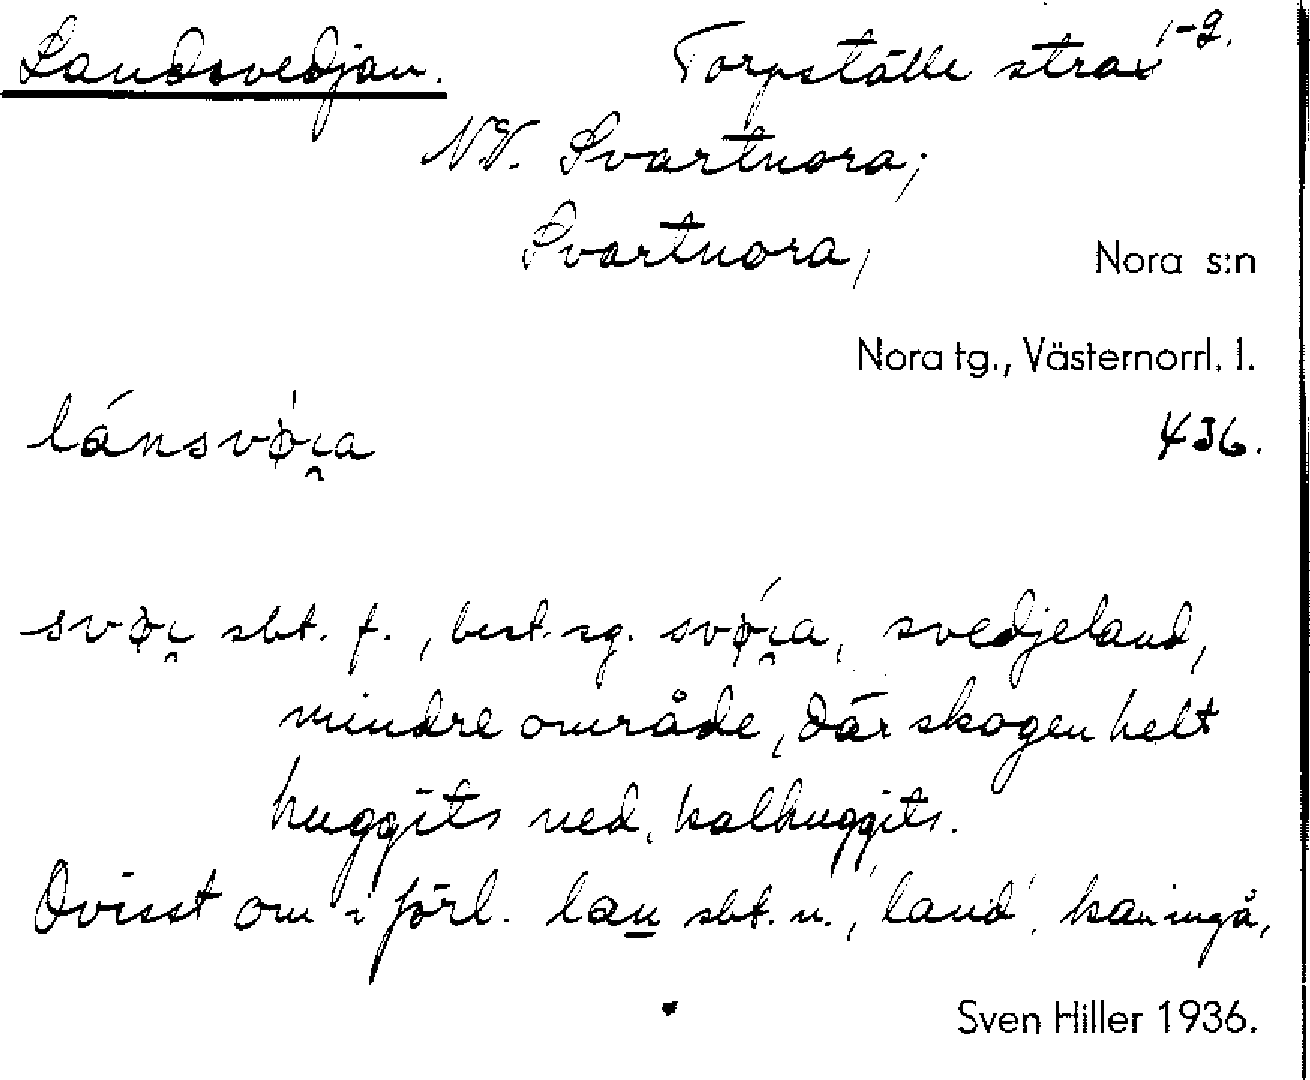 Landsvedjan. Torpställe strax 1-2.
NV. Svartnora;
Svartnora, Nora s:n
Nora tg., Västernorrl. l.
lánsvǿɩ̯a 436.
svøɩ̯ sbt. f., best. sg. svǿɩ̯a, svedjeland,
mindre område, där skogen helt
huggits ned, kalhuggits.
Ovisst om i förl. lan̲ sbt. n., 'land', kan ingå,
Sven Hiller 1936.